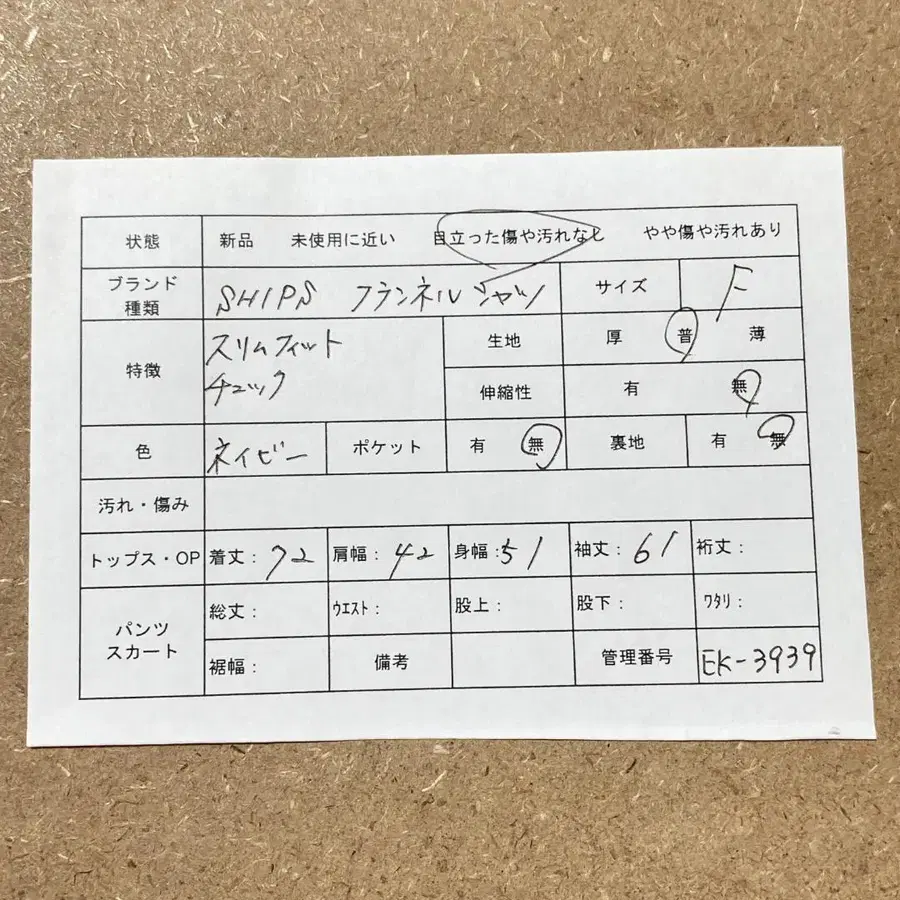 状態 新品 未使用に近い 目立った傷や汚れなし やや傷や汚れあり
ブランド
種類 SHIPS フランネルシャツ サイズ F
特徴 スリムフィット
チェック
生地 厚 普 薄
伸縮性 有 無
色 ネイビー ポケット 有 無 裏地 有 無
汚れ・傷み
トップス・OP 着丈：72 肩幅：42 身幅：51 袖丈：61 裄丈：
パンツ
スカート
総丈： ウエスト： 股上： 股下： ワタリ：
裾幅： 備考 管理番号 EK-3939